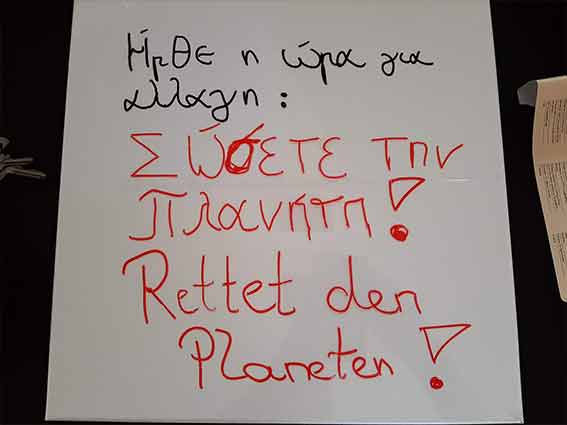 Ήρθε η ώρα για
αλλαγη :
ΣώσΕΤΕ την
Πλανήτη!
Rettet den
Planeten!